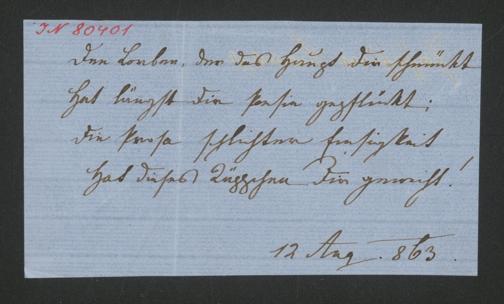 IN 80401
Den Lorber, der das Haupt dir schmückt
Hat längst die Poesie gepflückt;
Die Prosa schlichter Emsigkeit
Hat dieses Käppchen Dir geweiht!
12 Aug. 863.